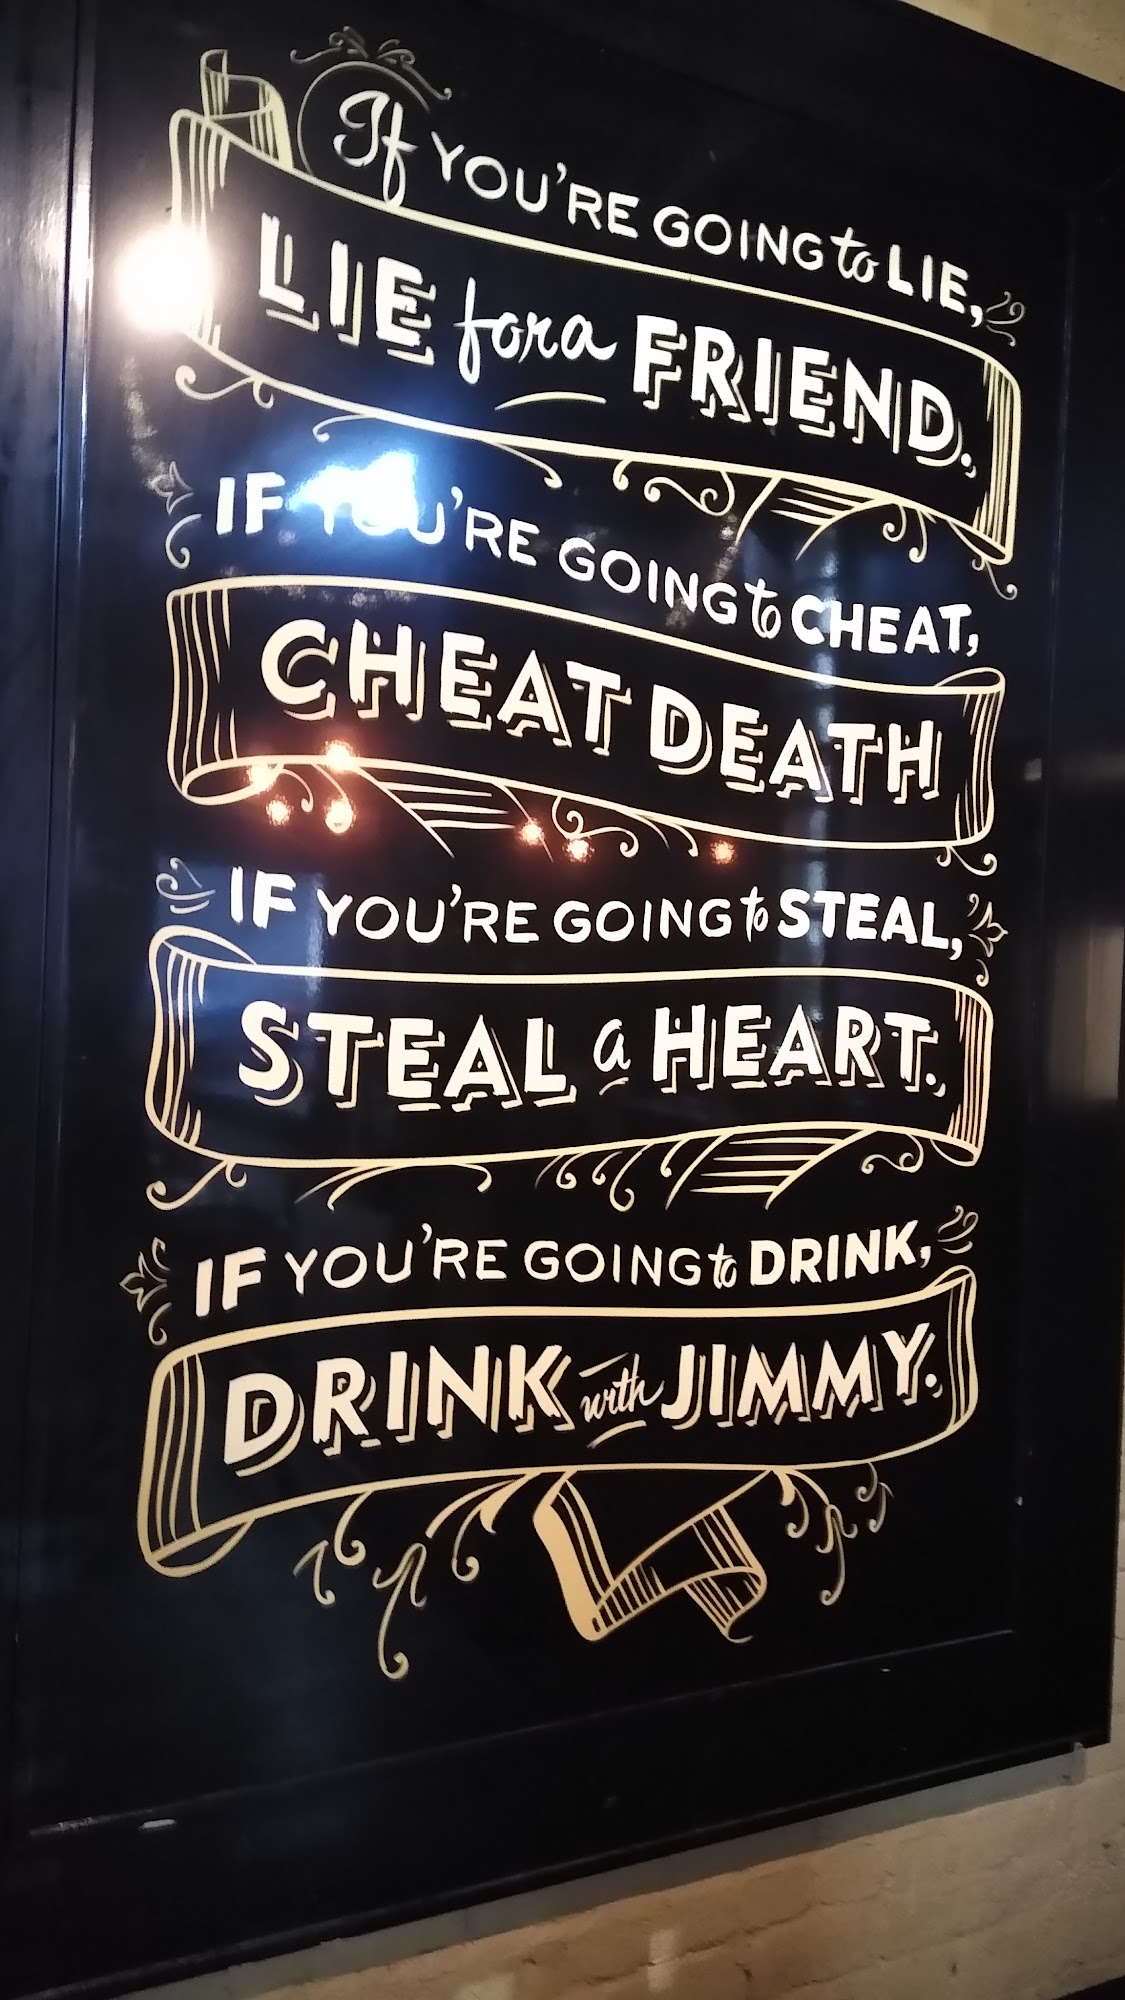 If YOU'RE GOING to LIE,
LIE for a FRIEND.
IF YOU'RE GOING to CHEAT,
CHEAT DEATH
IF YOU'RE GOING to STEAL,
STEAL a HEART.
IF YOU'RE GOING to DRINK,
DRINK with JIMMY.